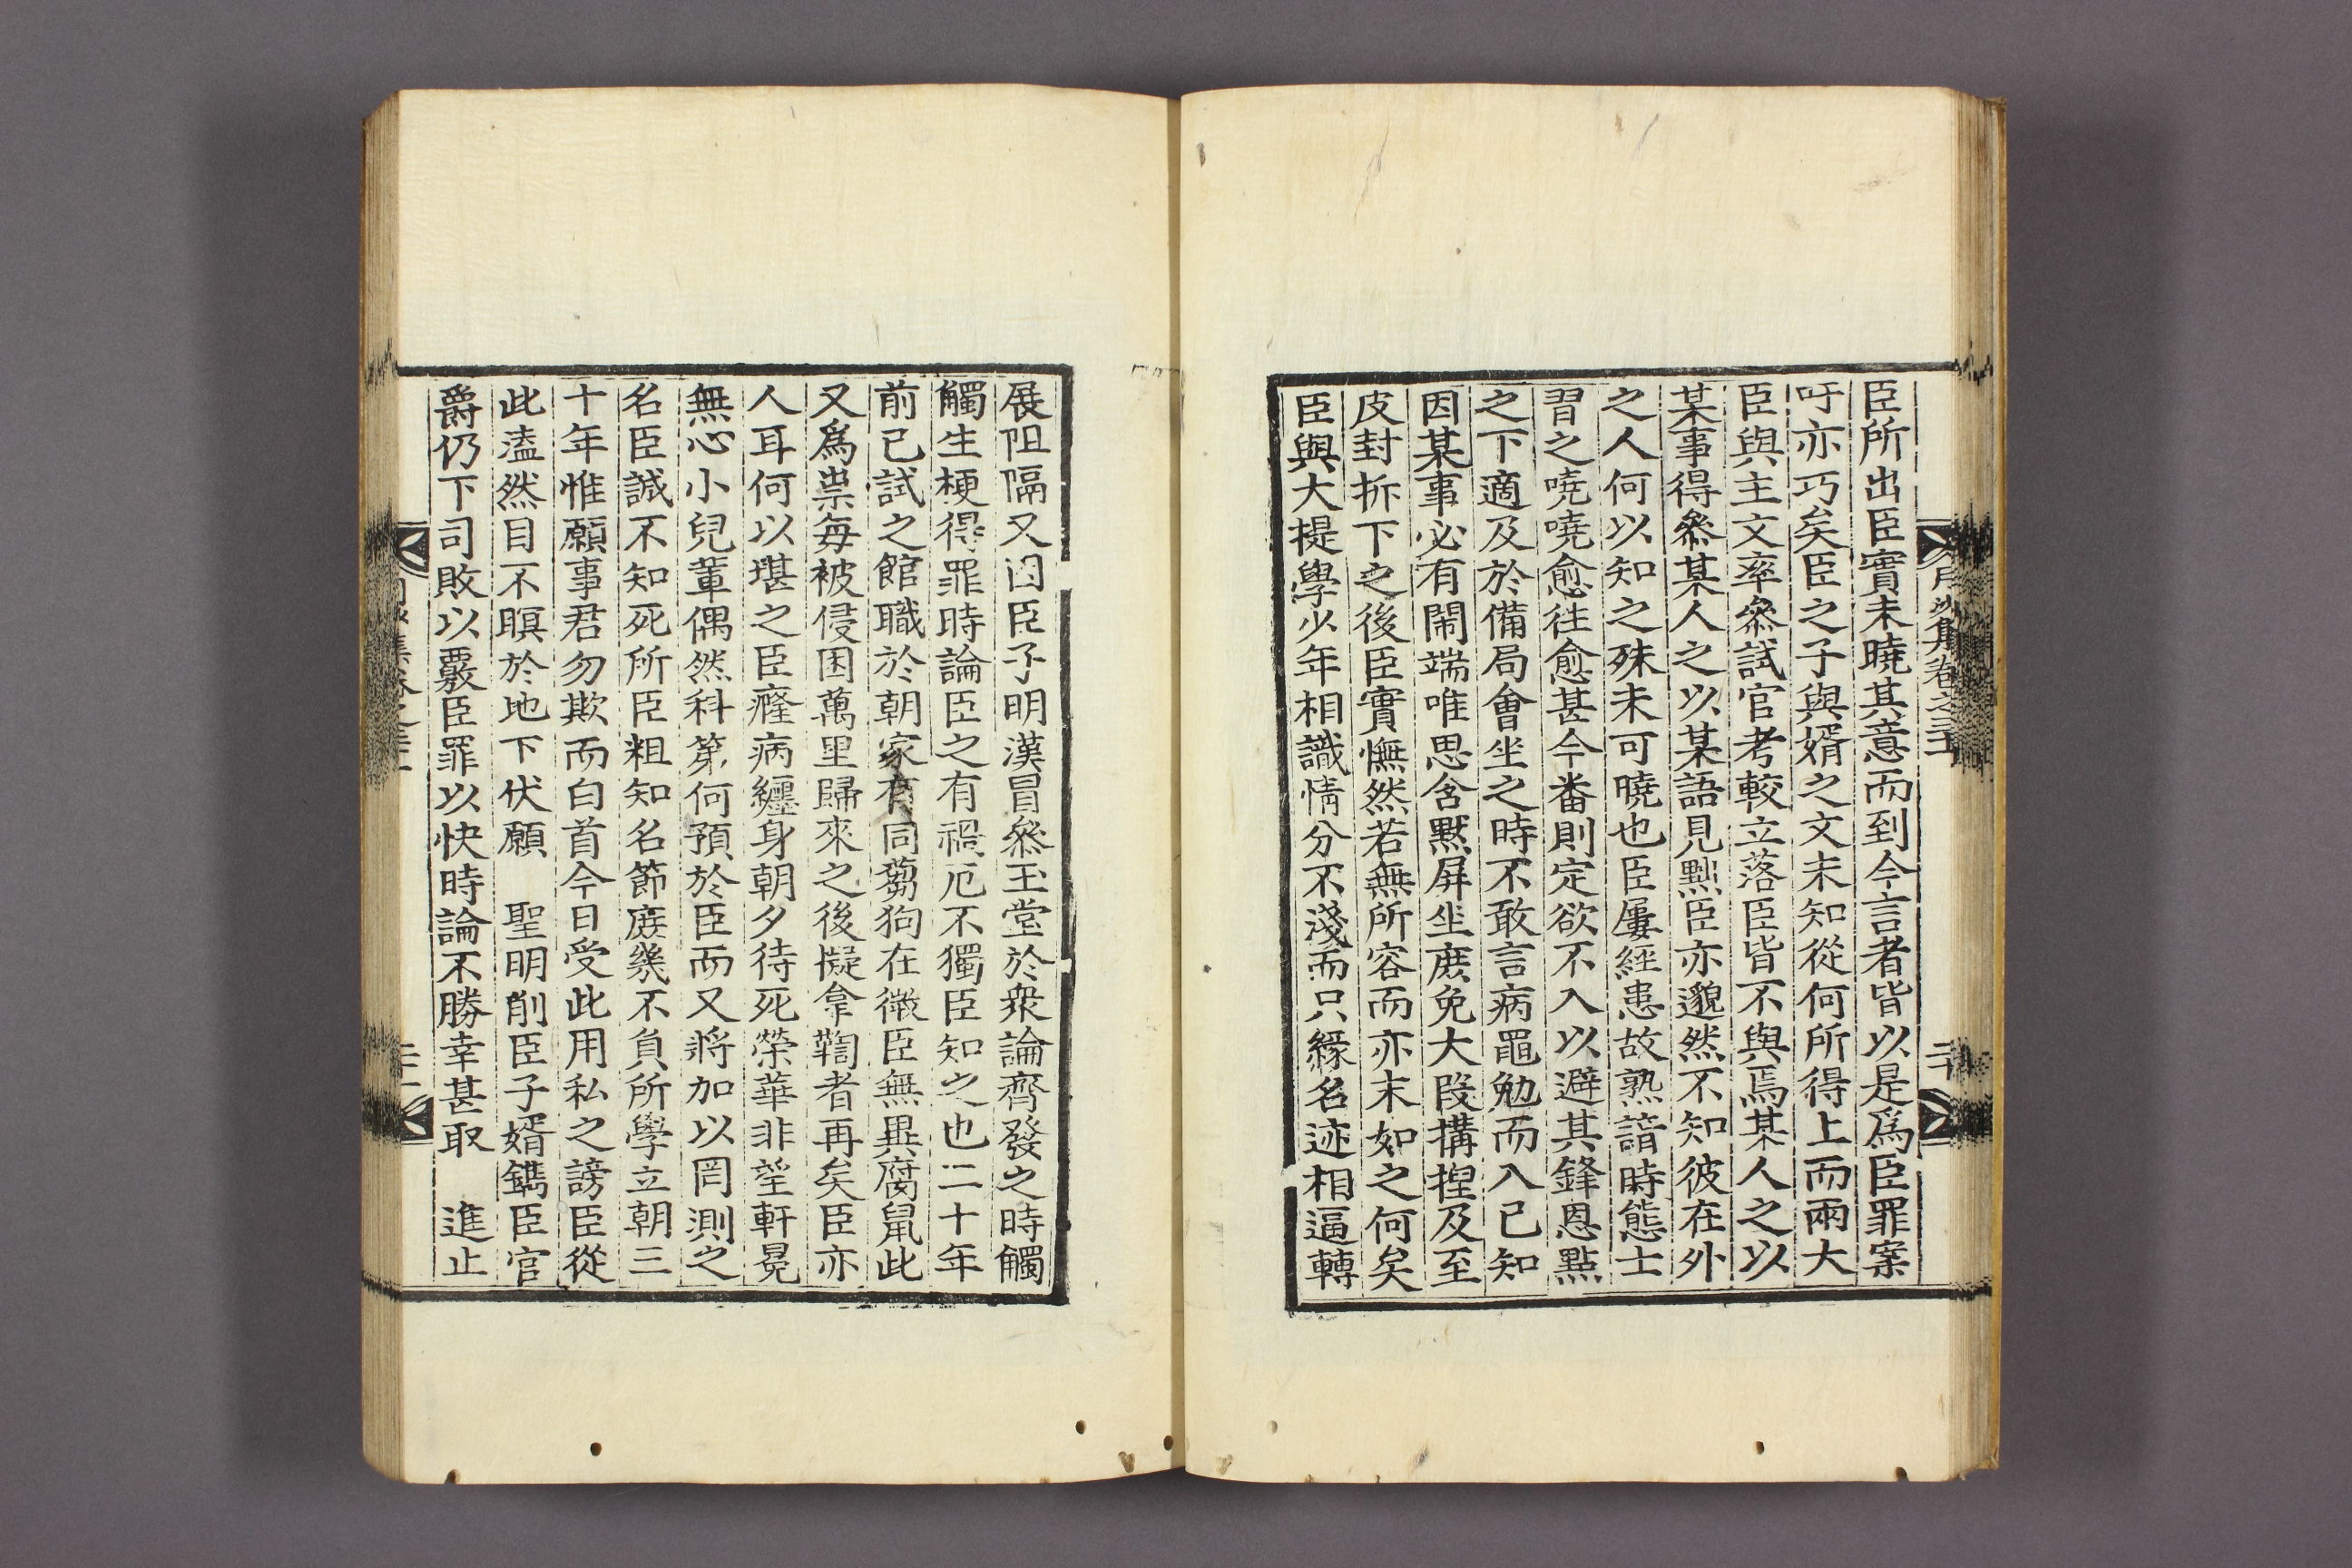 臣所出臣實未曉其意而到今言者皆以是爲臣罪案
吁亦巧矣臣之子與婿之文未知從何所得上而兩大
臣與主文率叅試官考較立落臣皆不與焉某人之以
某事得叅某人之以某語見黜臣亦邈然不知彼在外
之人何以知之殊未可曉也臣屢經患故熟諳時態士
習之嘵嘵愈往愈甚今番則定欲不入以避其鋒恩點
之下適及於備局會坐之時不敢言病黽勉而入已知
因某事必有鬧端唯思含默屏坐庶免大段搆揑及至
皮封拆下之後臣實憮然若無所容而亦末如之何矣
臣與大提學少年相識情分不淺而只緣名迹相逼轉
展阻隔又因臣子明漢冒叅玉堂於衆論齊發之時觸
觸生梗得罪時論臣之有禍厄不獨臣知之也二十年
前已試之館職於朝家有同蒭狗在微臣無異腐鼠此
又爲祟每被侵困萬里歸來之後擬拿鞫者再矣臣亦
人耳何以堪之臣癃病纏身朝夕待死榮華非望軒冕
無心小兒輩偶然科第何預於臣而又將加以罔測之
名臣誠不知死所臣粗知名節庶幾不負所學立朝三
十年惟願事君勿欺而白首今日受此用私之謗臣從
此溘然目不瞑於地下伏願　聖明削臣子婿鐫臣官
爵仍下司敗以覈臣罪以快時論不勝幸甚取　進止
月沙集卷之三十
二十